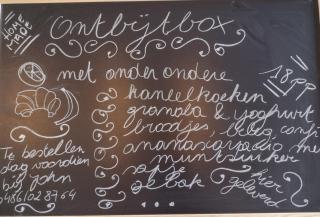 HOME
MADE
Ontbijtbox
met onder ondere
18 pp
kaneelkoeken
granola & yoghurt
broodjes, beleg, confi
munt suiker
gebak
hier
geleverd
Te bestellen
dag voordien
bij John